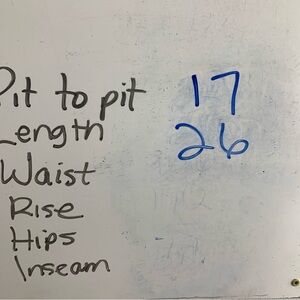 Pit to pit 17
Length 26
Waist
Rise
Hips
Inseam